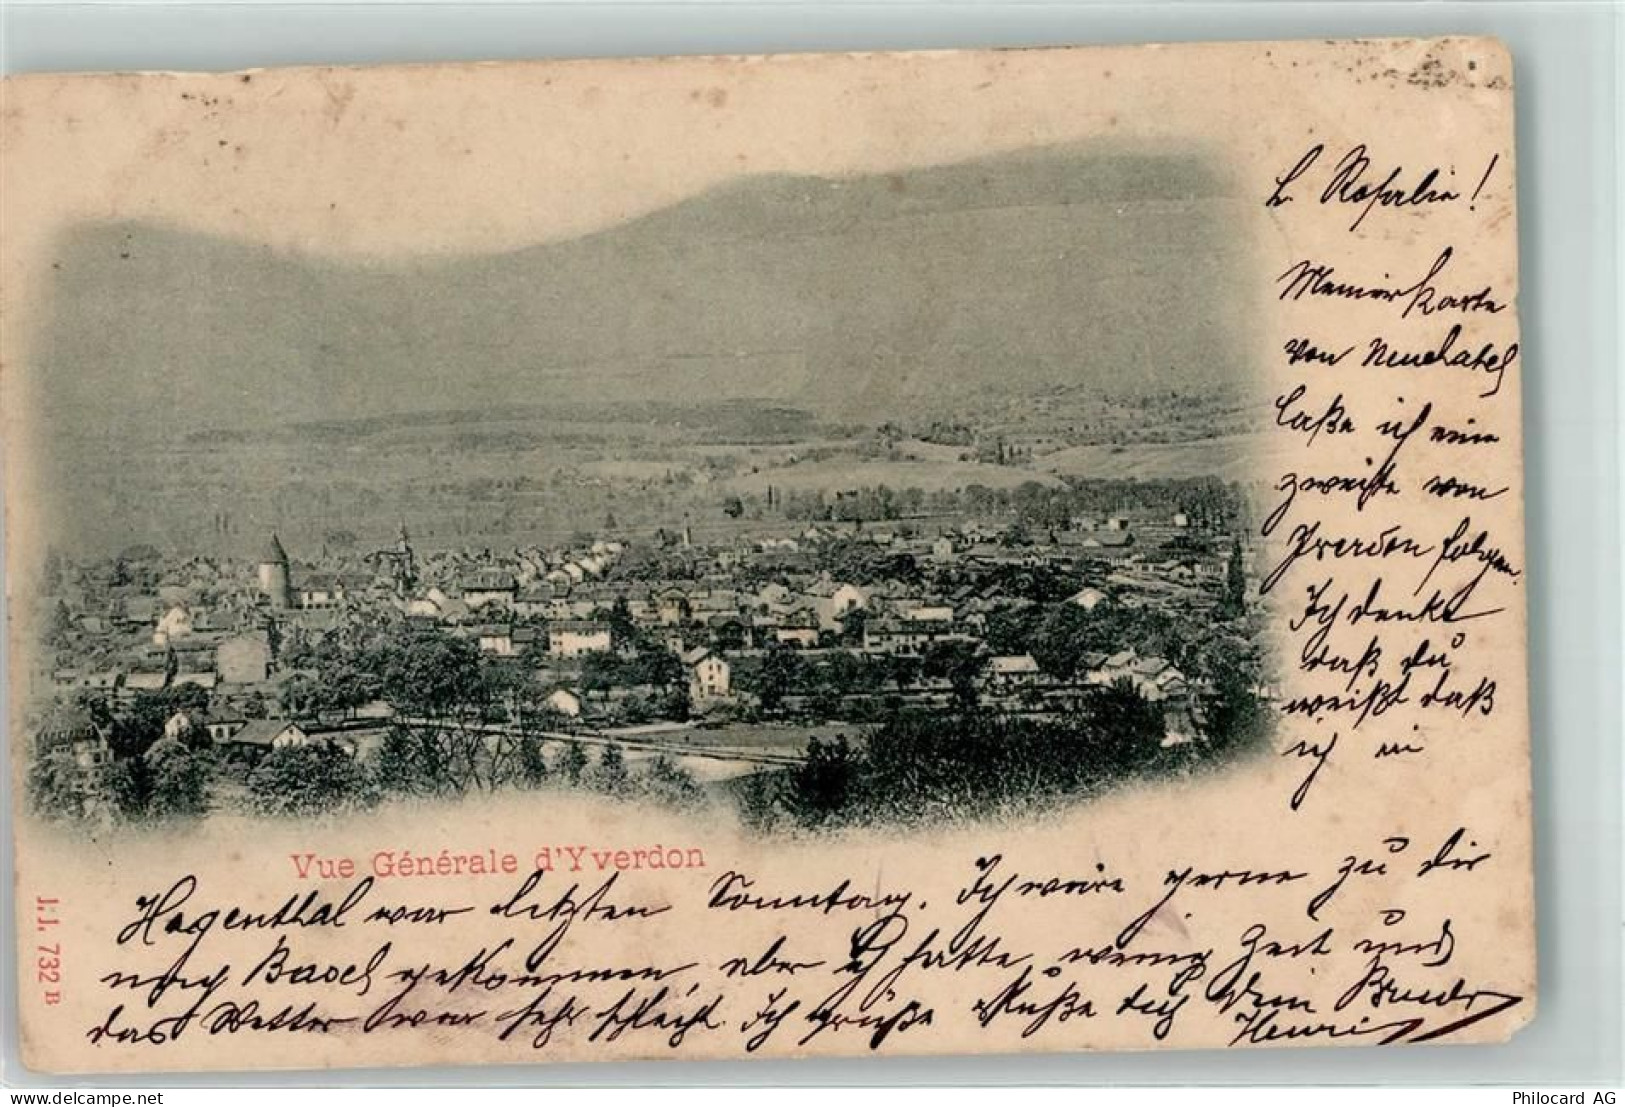 L. Rosalie!
Meiner Karte
von Neuchatel
laße ich eine
zweite von
Yverdon folgen.
Ich denke
daß du
weißt daß
ich in
Vue Générale d'Yverdon
J.J. 732 B
Hagenthal war letzten Sonntag. Ich wäre gerne zu dir
nach Basel gekommen, aber ich hatte wenig Zeit und
das Wetter war sehr schlecht. Ich grüße & küße dich Dein Bruder
Henri
www.delcampe.net
Philocard AG